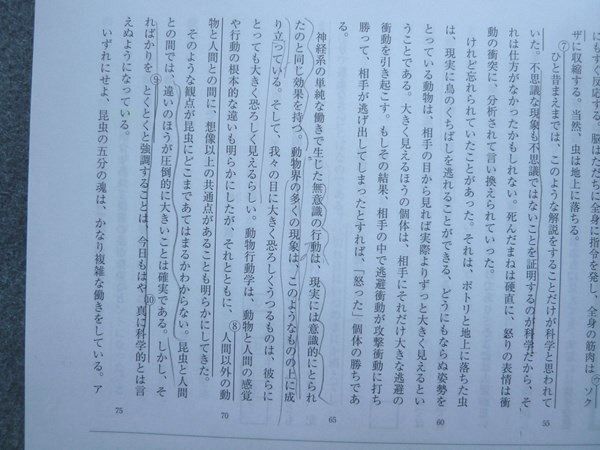 にもすぐ反応する。脳はただちに全身に指令を発し、全身の筋肉は㋒ゾク
ザに収縮する。当然、虫は地上に落ちる。
⑦ひと昔まえまでは、このような解説をすることだけが科学と思われて
いた。不思議な現象も不思議ではないことを証明するのが科学だから、そ
れは仕方がなかったかもしれない。死んだまねは硬直に、怒りの表情は衝
動の衝突に、分析されて言い換えられていった。
けれど忘れられていたことがあった。それは、ポトリと地上に落ちた虫
は、現実に鳥のくちばしを逃れることができる、どうにもならぬ姿勢を
とっている動物は、相手の目から見れば実際よりずっと大きく見えるとい
うことである。大きく見えるほうの個体は、相手にそれだけ大きな逃避の
衝動を引き起こす。もしその結果、相手の中で逃避衝動が攻撃衝動に打ち
勝って、相手が逃げ出してしまったとすれば、「怒った」個体の勝ちであ
る。
神経系の単純な働きで生じた無意識の行動は、現実には意識的にとられ
たのと同じ効果を持つ。動物界の多くの現象は、このようなものの上に成
り立っている。そして、我々の目に大きく恐ろしくうつるものは、彼らに
とっても大きく恐ろしく見えるらしい。動物行動学は、動物と人間の感覚
や行動の根本的な違いも明らかにしたが、それとともに、⑧人間以外の動
物と人間との間に、想像以上の共通点があることも明らかにしてきた。
そのような観点が昆虫にどこまであてはまるかわからない。昆虫と人間
との間では、違いのほうが圧倒的に大きいことは確実である。しかし、そ
ればかりを、⑨とくとくと強調することは、今日もはや、⑩真に科学的とは言
えぬようになっている。
いずれにせよ、昆虫の五分の魂は、かなり複雑な働きをしている。ア
55
60
65
70
75